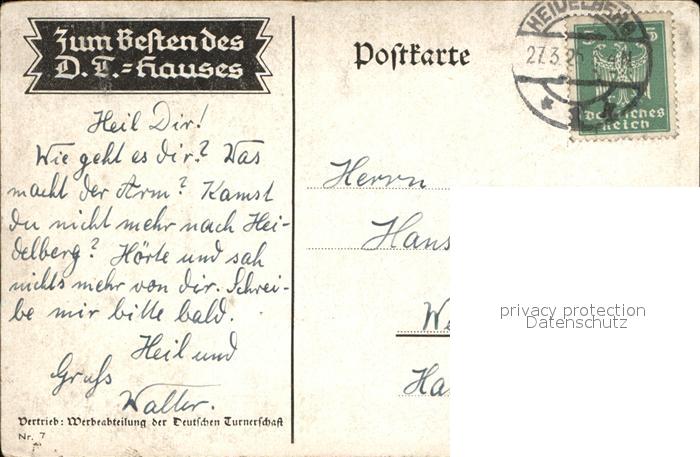 Zum Besten des
D. T.=Hauses
Heil Dir!
Wie geht es dir? Was
macht der Arm? Kamst
du nicht mehr nach Hei-
delberg? Hörte und sah
nichts mehr von dir. Schrei-
be mir bitte bald.
Heil und
Gruß
Walter.
Vertrieb: Werbeabteilung der Deutschen Turnerschaft
Nr. 7
Postkarte
HEIDELBERG
27.3.2
5 5
Deutsches
Reich
Herrn
Hans
We
Ha
privacy protection
Datenschutz